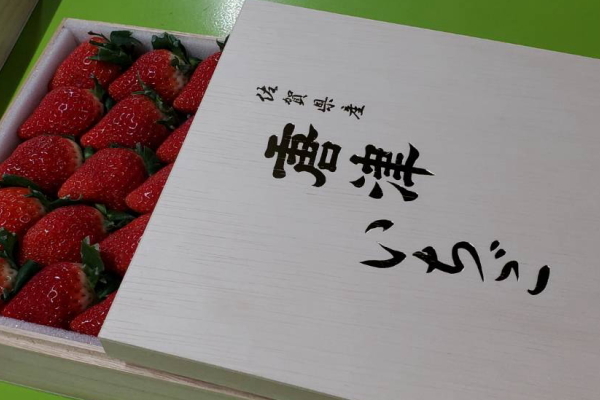 佐賀県産
唐津
いちご